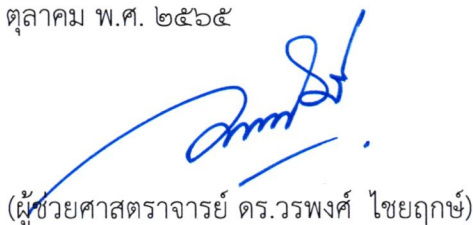 ตุลาคม พ.ศ. ๒๕๖๕
(ผู้ช่วยศาสตราจารย์ ดร.วรพงศ์ ไชยฤกษ์)